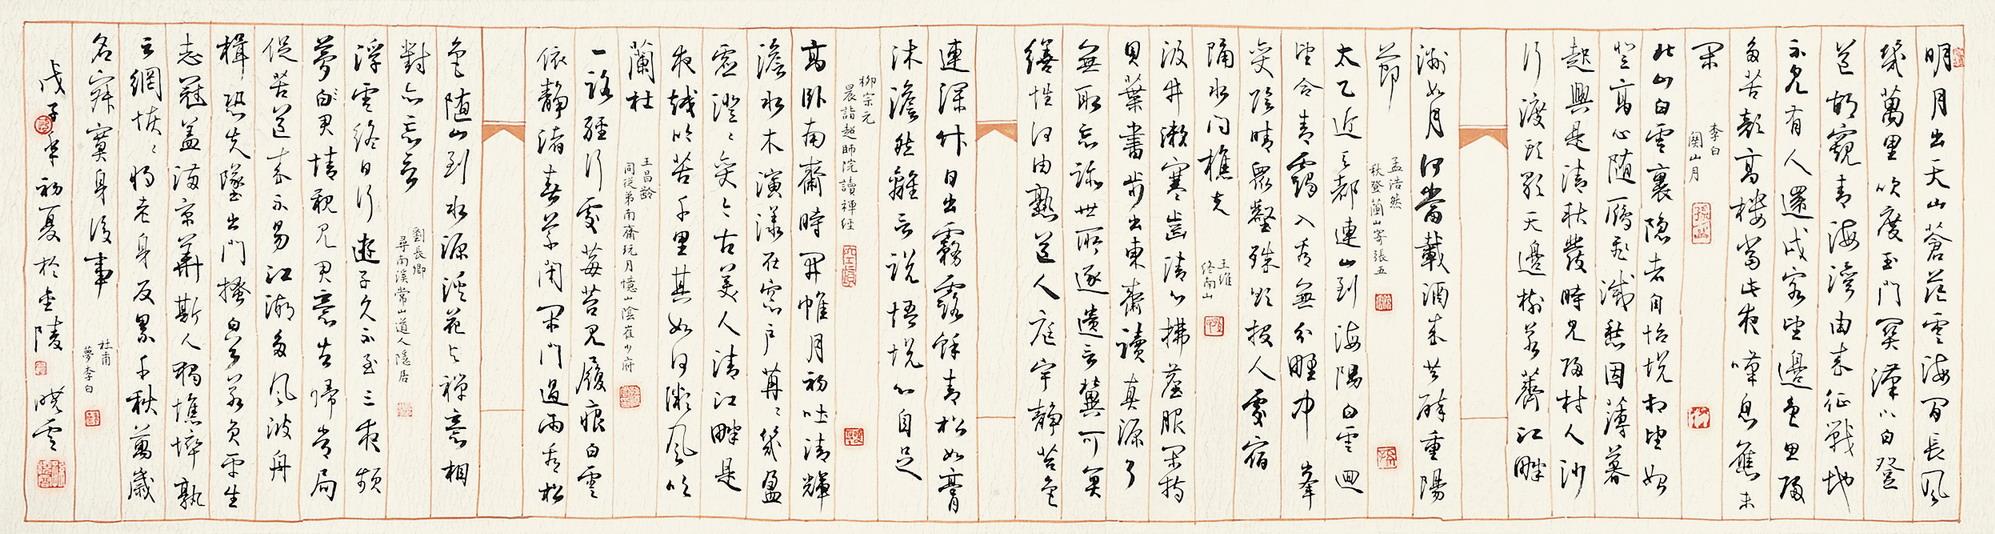 明月出天山蒼茫雲海間長風
幾萬里吹度玉門關漢下白登
道胡窺青海灣由來征戰地
不見有人還戍客望邊色思歸
多苦顏高樓當此夜嘆息應未
閑
李白
關山月
北山白雲裏隱者自怡悅相望始
登高心隨雁飛滅愁因薄暮
起興是清秋發時見歸村人沙
行渡頭歇天邊樹若薺江畔
洲如月何當載酒來共醉重陽
節
孟浩然
秋登蘭山寄張五
太乙近天都連山到海隅白雲迴
望合青靄入看無分野中峰
變陰晴眾壑殊欲投人處宿
隔水問樵夫
王維
終南山
汲井漱寒齒清心拂塵服閑持
貝葉書步出東齋讀真源了
無取妄跡世所逐遺言冀可冥
繕性何由熟道人庭宇靜苔色
連深竹日出霧露餘青松如膏
沐澹然離言說悟悅心自足
柳宗元
晨詣超師院讀禪經
高臥南齋時開帷月初吐清輝
澹水木演漾在窗戶苒〻幾盈
虛澄〻變今古美人清江畔是
夜越吟苦千里其如何微風吹
蘭杜
王昌齡
同從弟南齋玩月憶山陰崔少府
一路經行處莓苔見履痕白雲
依靜渚春草閉閑門過雨看松
色隨山到水源溪花與禪意相
對亦忘言
劉長卿
尋南溪常山道人隱居
浮雲終日行遊子久不至三夜頻
夢君情親見君意告歸常局
促苦道來不易江湖多風波舟
楫恐失墜出門搔白首若負平生
志冠蓋滿京華斯人獨憔悴孰
云網恢〻將老身反累千秋萬歲
名寂寞身後事
杜甫
夢李白
戊子年初夏於金陵 曉雲